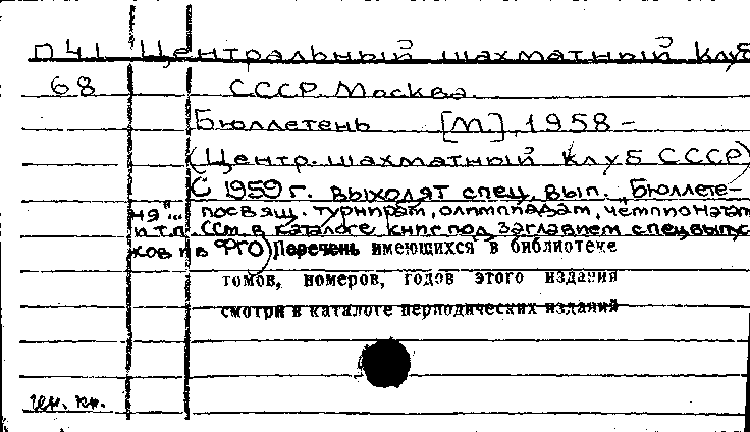 П41 Центральный шахматный клуб
68 СССР. Москва.
Бюллетень [М.], 1958 –
(Центр. шахматный клуб СССР)
С 1959 г. выходят спец. вып. "Бюллете-
ня"... посвящ. турнирам, олимпиадам, чемпионатам
и т.п. (См. в каталоге книг под заглавием спецвыпус-
ков и в ФГО) Перечень имеющихся в библиотеке
томов, номеров, годов этого издания
смотри в каталоге периодических изданий